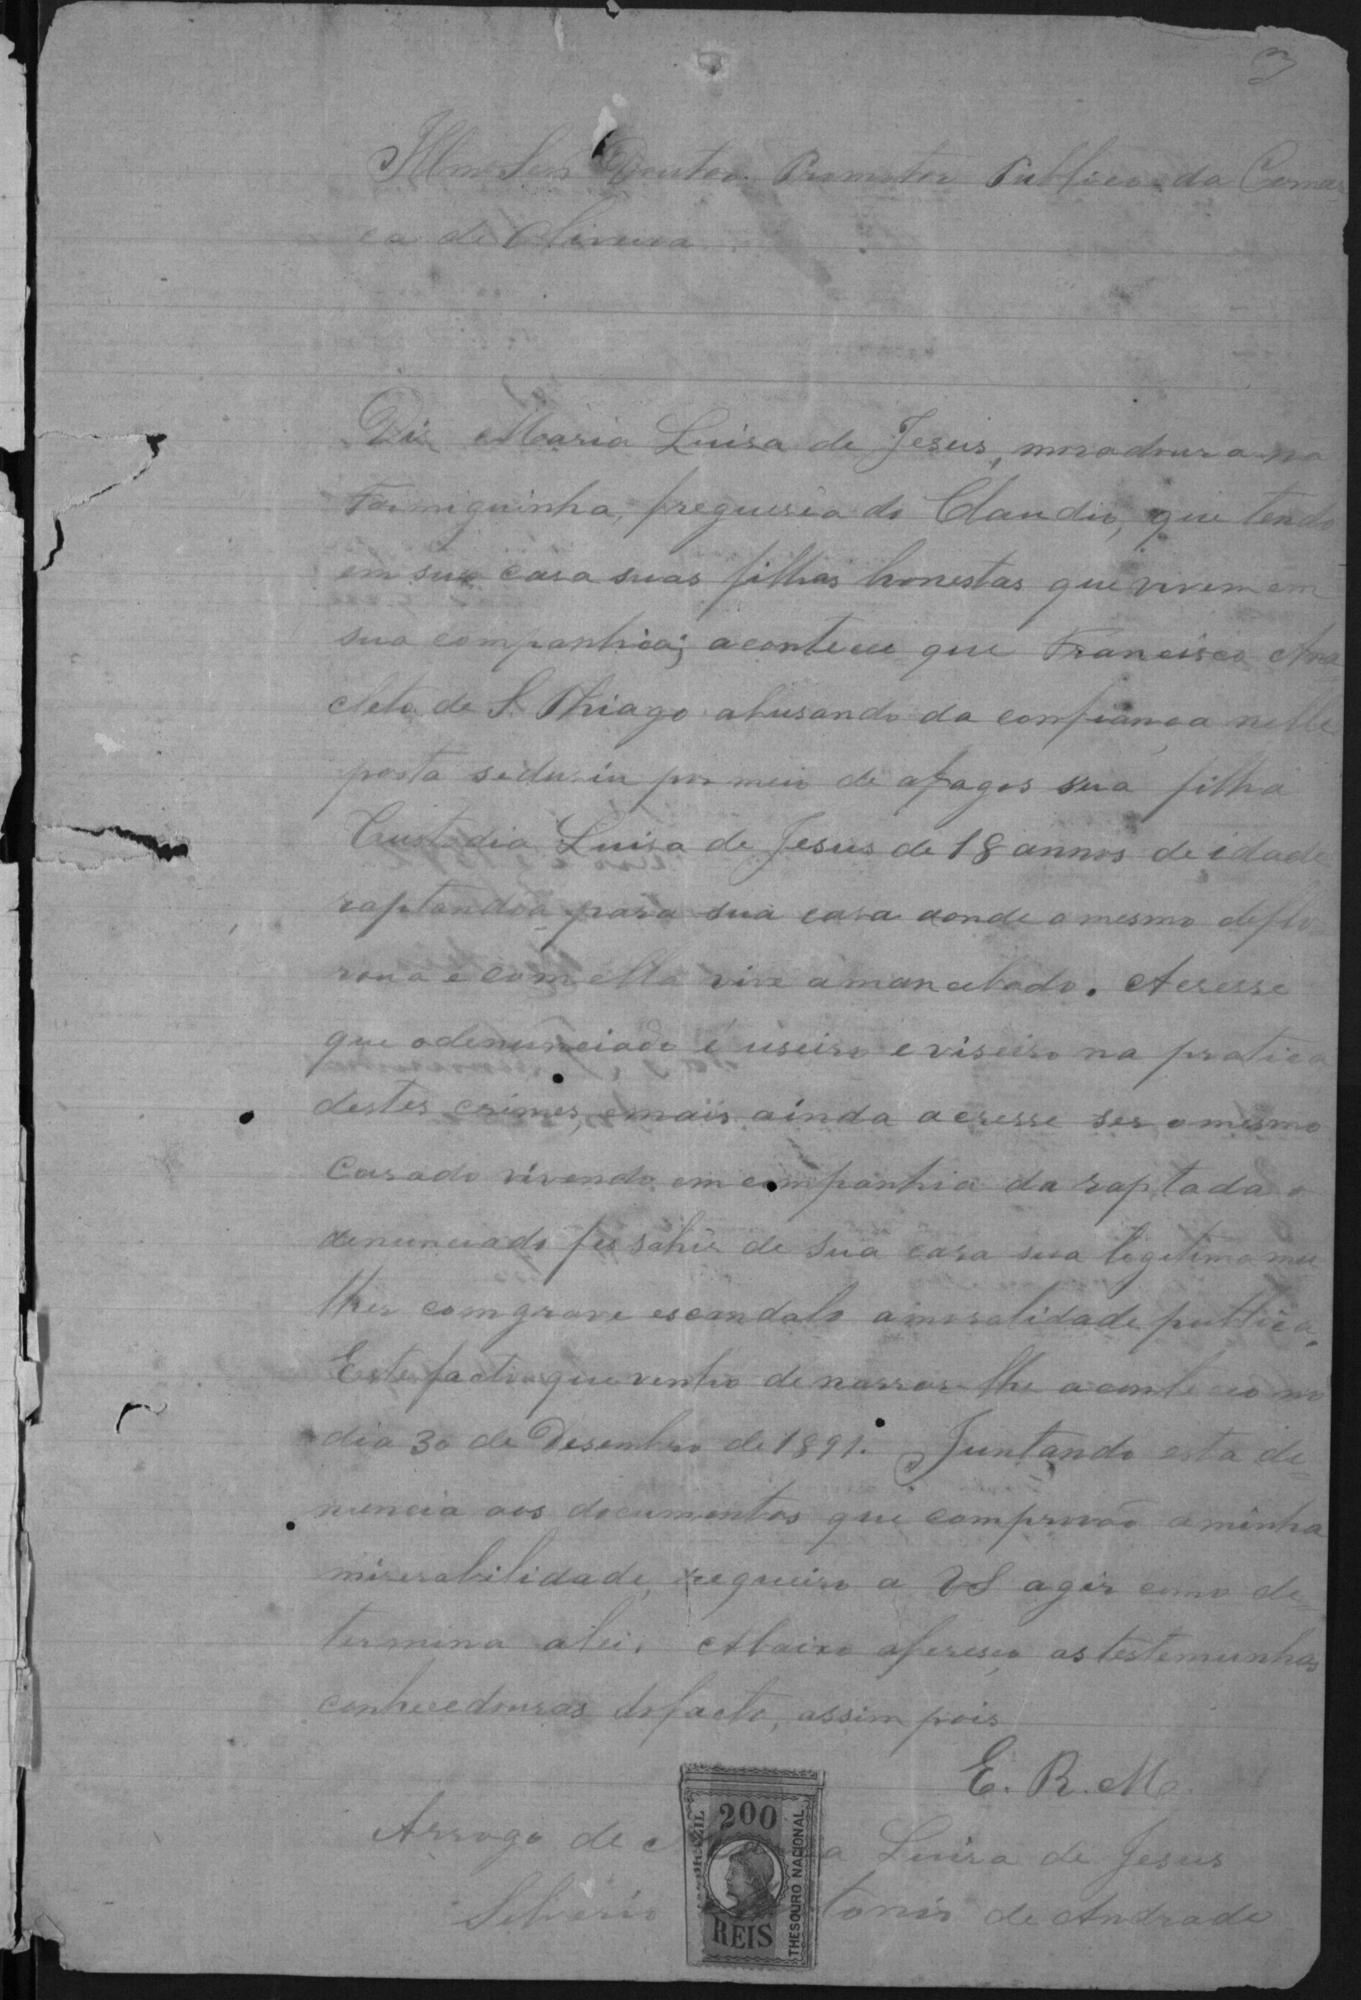 3
Illmo Snr Doutor Promotor Publico da Comar
ca de Oliveira
Diz Maria Luisa de Jesus, moradoura na
Formiguinha, freguesia do Claudio, que tendo
em sua casa suas filhas honestas que vivem em
sua companhia; aconteceu que Francisco Ana
cleto de S. Thiago abusando da confiança nelle
posta seduziu por meio de afagos sua filha
Custodia Luisa de Jesus de 18 annos de idade
raptandoa para sua casa aonde o mesmo deflo
rou a e com ella vive amancebado. Acresse
que o denunciado é useiro e viseiro na pratica
destes crimes, e mais ainda acresse ser o mesmo
casado vivendo em companhia da raptada o
denunciado fes sahir de sua casa sua legitima mu
lher com grave escandalo a moralidade publica.
Este facto que venho de narrar lhe aconteceo no
dia 30 de Desembro de 1891. Juntando esta de=
nuncia aos documentos que comprovão a minha
miserabilidade, requeiro a VS agir como de=
termina a lei. Abaixo afereço as testemunhas
conhecedouras do facto, assim pois
E. R. M.
Arrogo de Maria Luisa de Jesus
Silverio Antonio de Andrade
BRAZIL
200
REIS
THESOURO NACIONAL